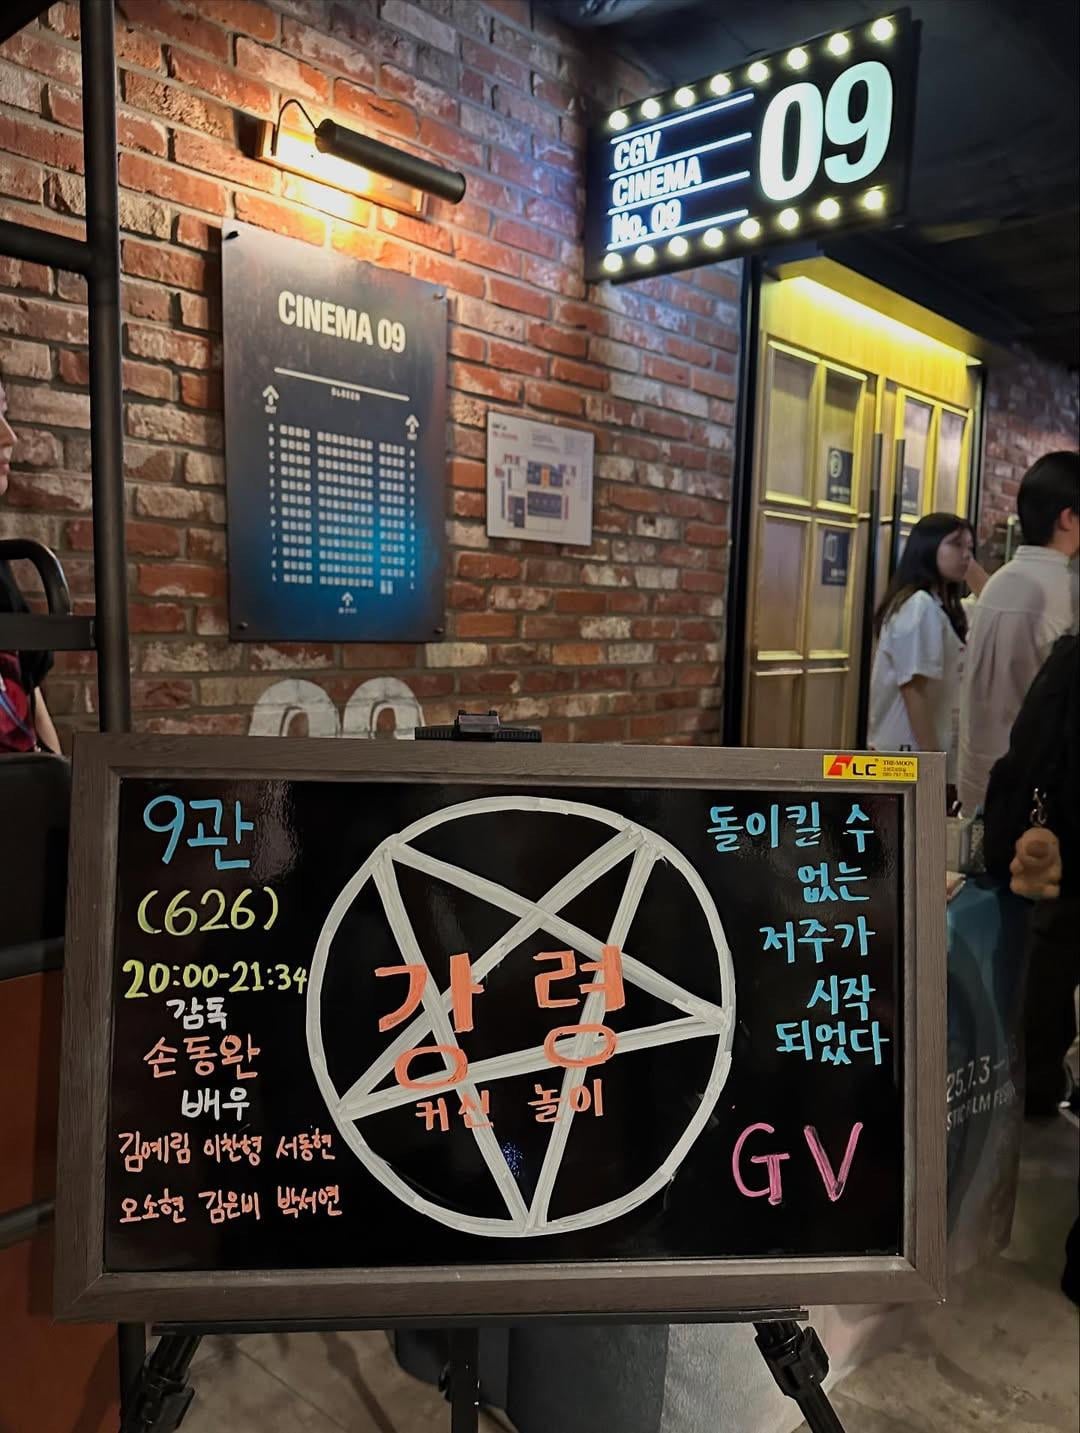 CGV
CINEMA
No. 09
09
CINEMA 09
SCREEN
OUT
OUT
LC
THE MOON
9관
(626)
20:00-21:34
감독
손동완
배우
김예림 이찬형 서동현
오소현 김은비 박서연
강령
커신 놀이
돌이킬 수
없는
저주가
시작
되었다
GV
25.7.3-